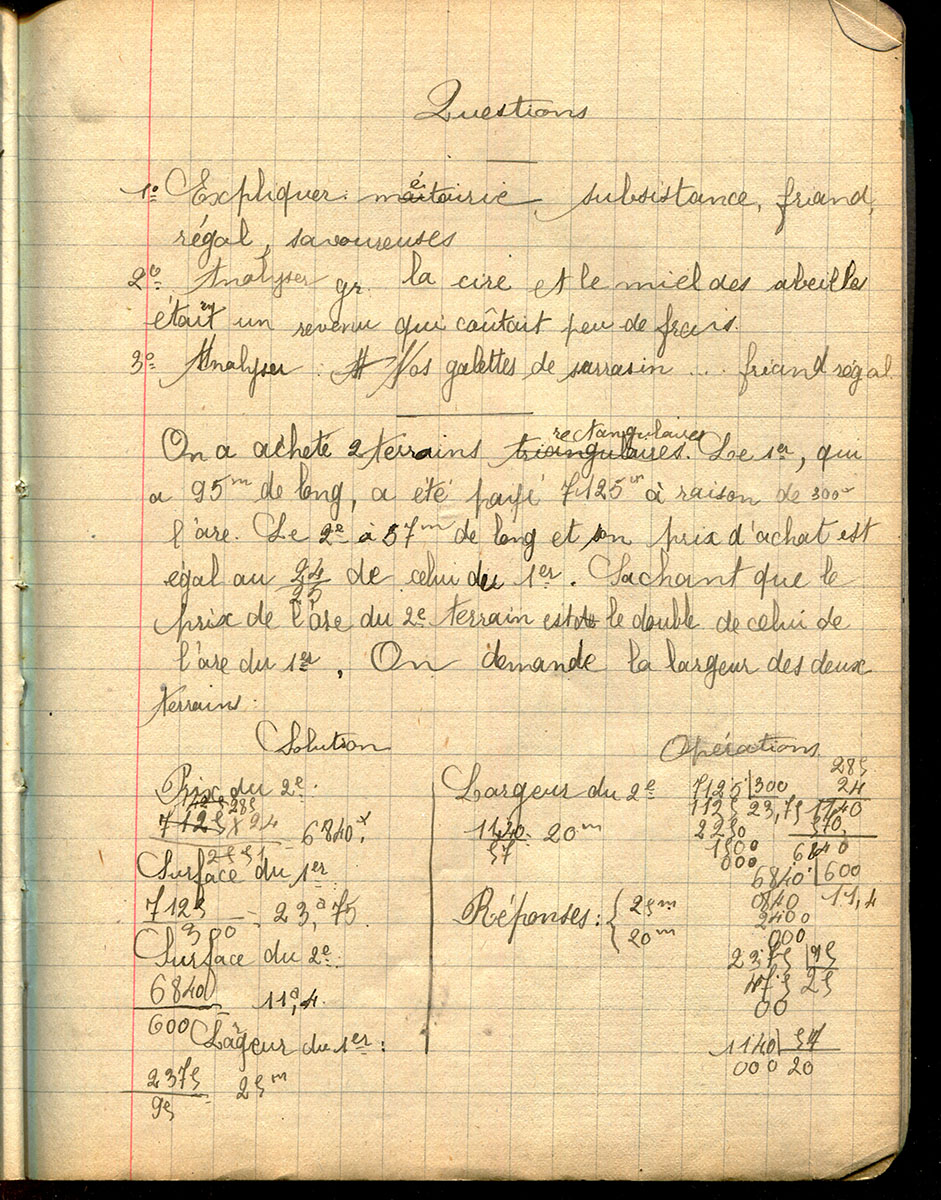 Questions
1° Expliquer: métairie, subsistance, friand,
régal, savoureuses
2° Analyser gr. la cire et le miel des abeilles
était un revenu qui coûtait peu de frais.
3° Analyser : Nos galettes de sarrasin ... friand régal
On a acheté 2 terrains triangulaires rectangulaires. Le 1er, qui
a 95m de long, a été payé 7125 à raison de 300
l'are. Le 2e à 57m de long et son prix d'achat est
égal au 24/25 de celui du 1er. Sachant que le
prix de l'are du 2e terrain est le double de celui de
l'are du 1er, On demande la largeur des deux
terrains:
Solution
Opérations
Prix du 2e
7125 x 24 = 6840
25
Surface du 1er
7125 = 23,a75
300
Surface du 2e:
6840 = 11a,4.
600
Largeur du 1er:
2375 = 25m
95
Largeur du 2e
1140 = 20m
57
Réponses: { 25m
20m
7125 | 300
1125 23,75
2250
1500
000
285
24
1140
570
6840
6840 | 600
0840 11,4
2400
000
2375 | 95
475 25
00
1140 | 57
000 20